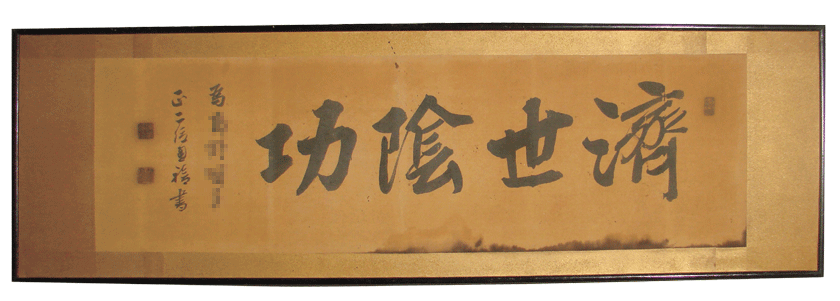 濟世陰功
為
正二位書